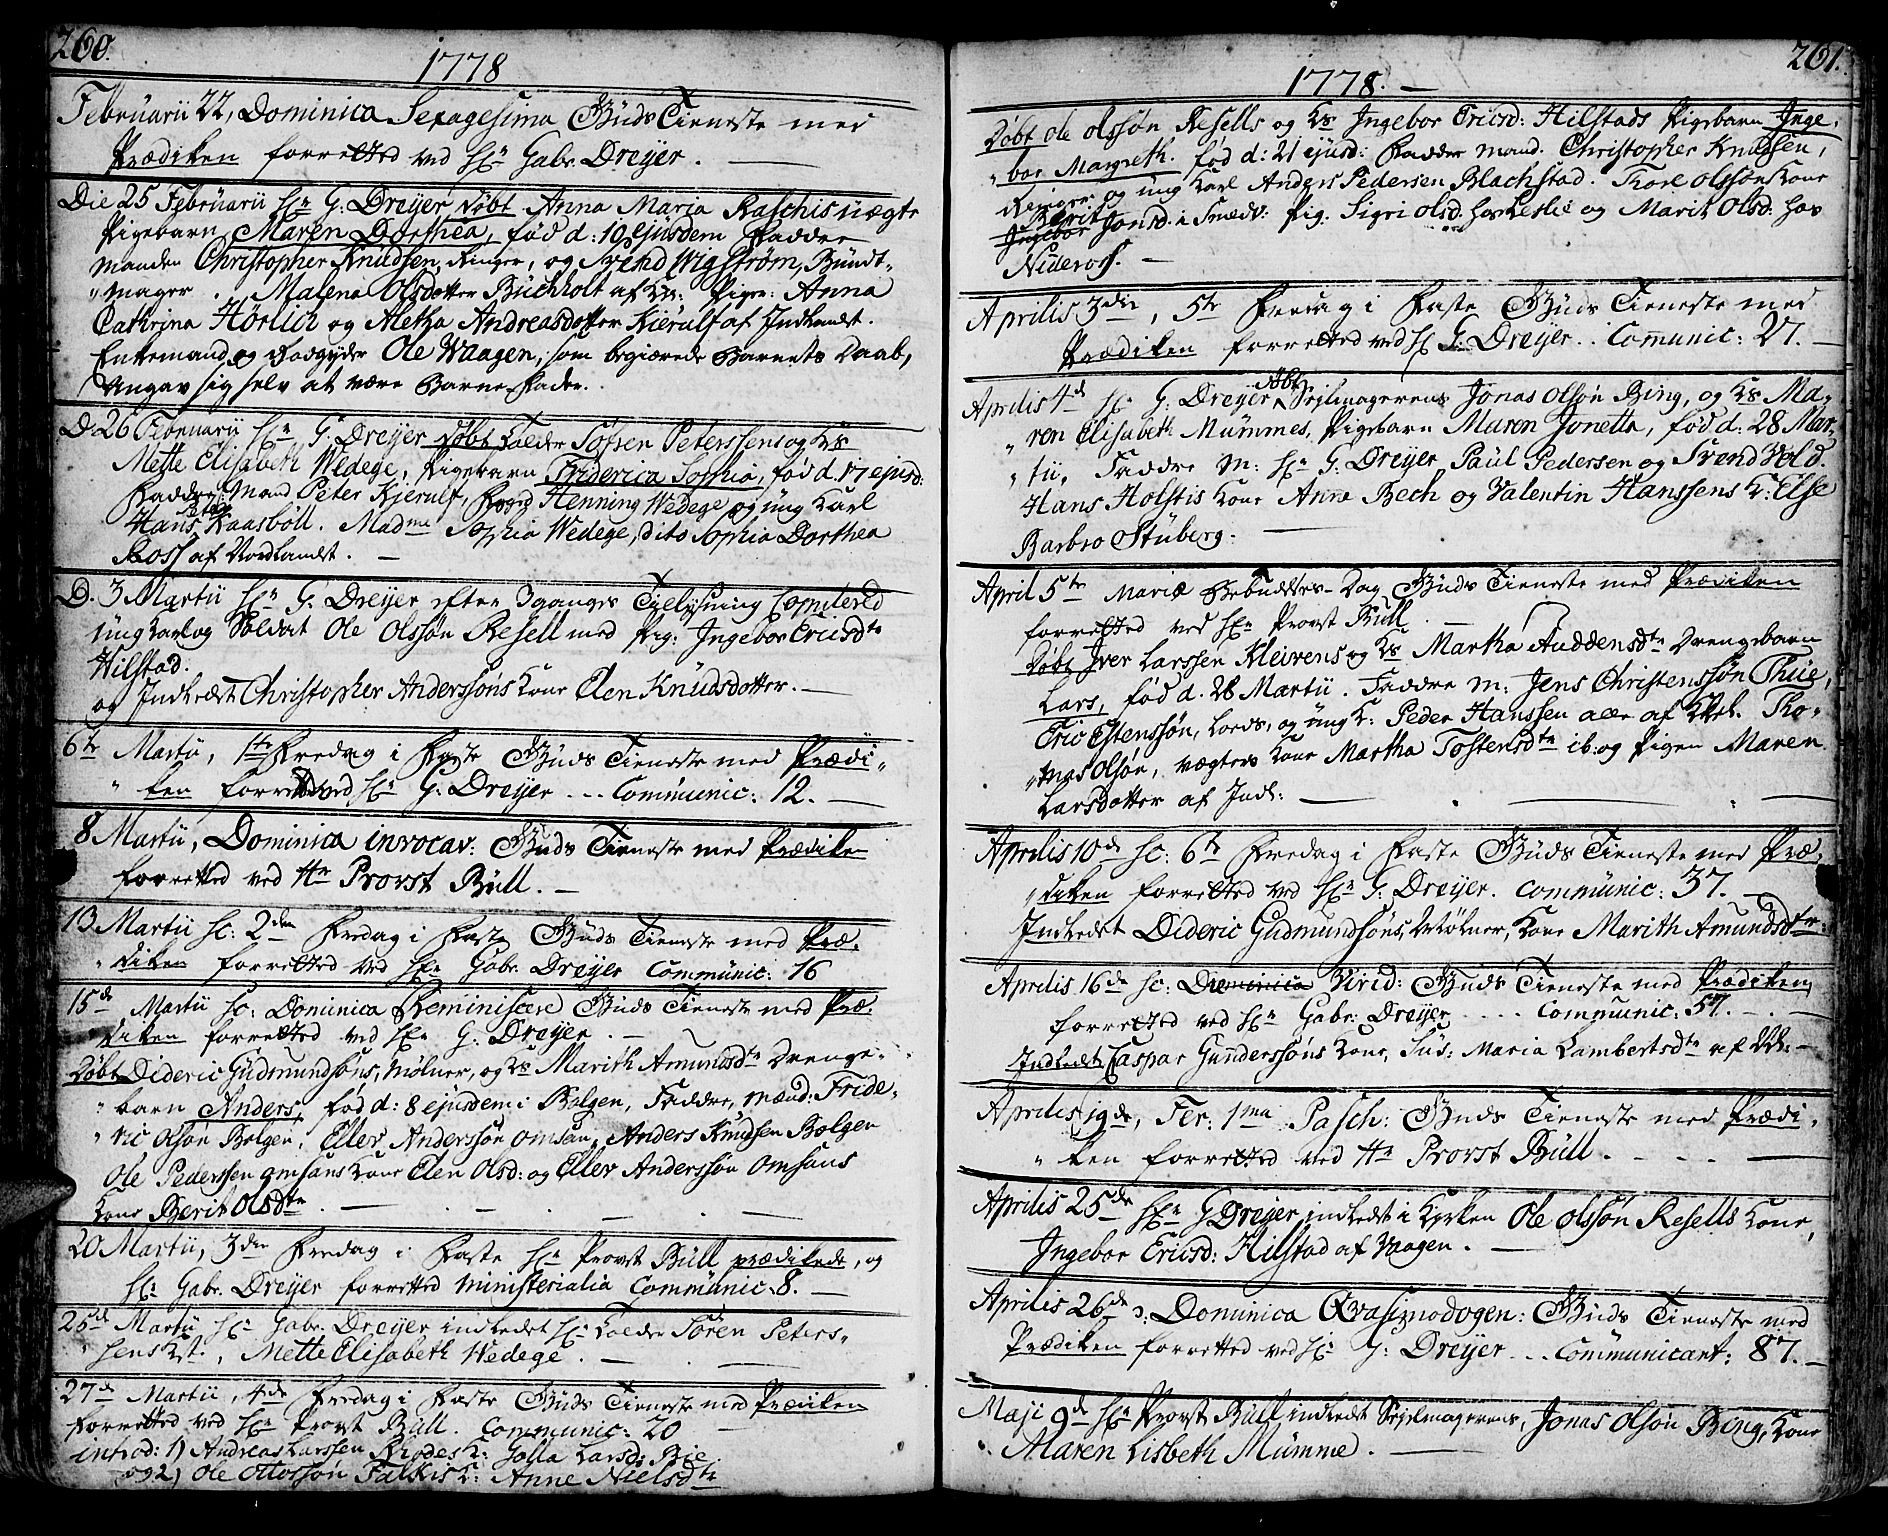 260.
1778
Februarii 22, Dominica Sexagesima Guds Tieneste med
Prædiken forretted ved Hr. Gabr. Dreyer.
Die 25 Februarii Hr. G. Dreyer døbt Anna Maria Raschis uægte
Pigebarn Maren Dorthea, fød d: 10 ejusdem Faddre
Manden Christopher Knudsen, Ringer, og Svend Wigstrøm, Bundt-
"mager. Malena Olsdotter Buchholt af Kr: Piger: Anna
Cathrina Hörlich og Aletha Andreasdotter Kierulf af Indlandet.
Enkemand og Rodgyder Ole Waagen, som begiærede Barnets Daab,
Angav sig selv at være Barne-Fader.
D. 26 Februarii Hr. G. Dreyer døbt Tolder Søfren Peterssens og Ks
Mette Elisabeth Wedege, Pigebarn Friderica Sophia, fød d. 17 ejusd:
Faddre: Mand Peter Kjerulf, Henning Wedege og ung Karl
Hans Kaasbøll. Madme Sophia Wedege, dito Sophia Dorthea
Ross af Nordlandet.
D. 3 Martii Hr. G. Dreyer efter 3 ganges Tillysning Copulered
ung Karl og Soldat Ole Olssøn Resell med Pig: Ingebor Ericsdtr
Hilstad.
og Indledet Christopher Anderssøns Kone Elen Knudsdotter.
6te Martii, 1te Fredag i Faste Guds Tieneste med Prædi-
"ken forretted ved Hr. G. Dreyer ... Communic: 12.
8 Martii, Dominica invocav: Guds Tieneste med Prædiken
forretted ved Hr Provst Bull.
13 Martii sc: 2den Fredag i Faste Guds Tieneste med Præ-
"diken forretted ved Hr. Gabr. Dreyer Communic: 16
15de Martii sc: Dominica Reminiscere Guds Tieneste med Præ-
diken forretted ved Hr. G. Dreyer.
Døbt Dideric Gudmundsøns, Mølner, og Ks Marith Amundsdtr Drenge-
"barn Anders, fød d: 8 ejusdem i Bolgen, Faddre, Mænd: Fride-
"ric Olsøn Bolgen, Eller Anderssøn Omsan, Anders Knudsen Bolgen
Ole Pederssen Omsans Kone Elen Olsd: og Eller Anderssøn Omsans
Kone Berit Olsdtr.
20 Martii, 3die Fredag i Faste Hr. Provst Bull prædikede, og
Hr. Gabr. Dreyer forretted ministerialia Communic: 8.
25de Martii Hr. Gabr. Dreyer indledet Hr. Tolder Søren Peters-
"sens Kst. Mette Elisabeth Wedege.
27de Martii, 4de Fredag i Faste Guds Tieneste med Prædiken
forretted ved Hr. Provst Bull. Communic: 20
introd: 1) Andreas Larssen Rhodes K: Golla Larsd: Bie
og 2) Ole Ottossøn Falkis K: Anne Nielsdtr
261.
1778.
Døbt Ole Olssøn Resells og Ks Ingebor Ericsd: Hilstads Pigebarn Inge-
"bor Margreth. fød d: 21 ejusd: Faddre Mænd. Christopher Knudsen,
Ringer og ung Karl Anders Pedersen Blachstad. Tore Olssøns Kone
Berit
Ingebor Jonsd. i Smedv: Pig. Sigri Olsd. hos Leslie og Marit Olsd: hos
Nideros.
Aprilis 3die, 5te Fredag i Faste Guds Tieneste med
Prædiken forretted ved Hr G. Dreyer.. Communic: 27.
Aprilis 4de Hr. G. Dreyer døbt Sejlmagerens Jonas Olsøn Bing, og Ks Ma-
"ren Elisabeth Mummes, Pigebarn Maren Jonetta, fød d: 28 Mar-
"tii, Faddre M: Hr. G. Dreyer Paul Pedersen og Svend Vold.
Hans Holstis Kone Anne Bech og Valentin Hanssens K: Else
Barbro Stuberg.
April 5te Mariæ Bebudelses-Dag Guds Tieneste med Prædiken
forretted ved Hr. Provst Bull.
Døbt Iver Larssen Kleivens og Ks Martha Auddensdtr Drengebarn
Lars, fød d. 28 Martii. Faddre M: Jens Christenssøn Thue,
Eric Estenssøn, Lords, og ung K: Peder Hanssen alle af Kkl. Tho-
"mas Olsøn, vægters Kone Martha Tostensdtr ib: og Pigen Maren
Larsdotter af Indl:
Aprilis 10de sc: 6te Fredag i Faste Guds Tieneste med Præ-
"diken forretted ved Hr. G. Dreyer. Communic: 37.
Indledet Dideric Gudmundsøns, Mølner, Kone Marith Amundsdtr.
Aprilis 16de sc: Dominica Virid: Guds Tieneste med Prædiken
forretted ved Hr. Gabr: Dreyer .... Communic: 57.
Indledt Caspar Gunderssøns Kone, Sus: Maria Lambertsdtr af Kkl:
Aprilis 19de, Fer: 1ma Pasch: Guds Tieneste med Prædi-
"ken forretted ved Hr Provst Bull.
Aprilis 25de Hr. G Dreyer indledt i Kirken Ole Olssøn Resells Kone,
Ingebor Ericsd: Hilstad af Vaagen.
Aprilis 26de: Dominica Qvasimodogen: Guds Tieneste med
Prædiken forretted ved Hr. G. Dreyer... Communicant: 87.
Maji 9de Hr. Provst Bull indledt Sejelmagerens, Jonas Olsøn Bing, Kone
Maren Lisbeth Mumme.